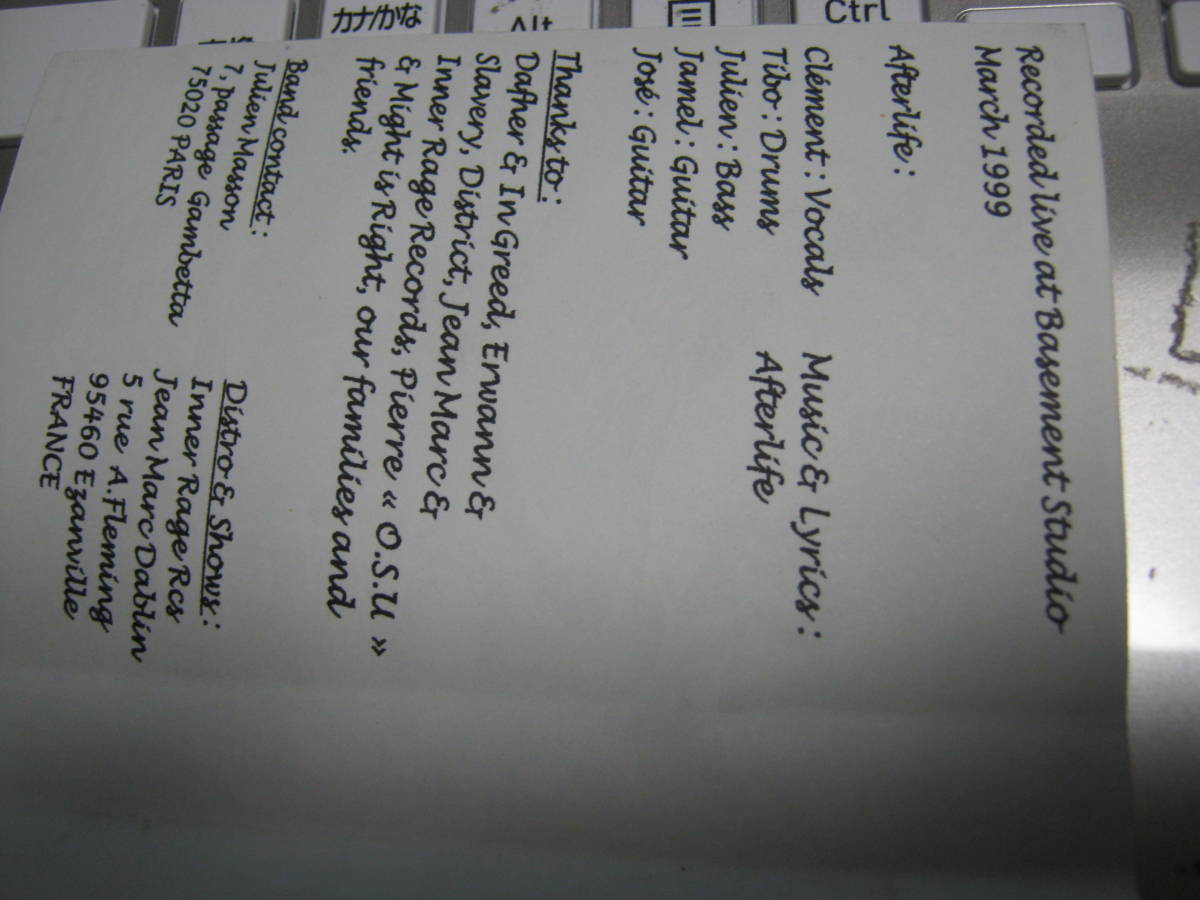 Recorded live at Basement Studio
March 1999
Afterlife :
Clément : Vocals
Tibo : Drums
Julien : Bass
Jamel : Guitar
José : Guitar
Music & Lyrics :
Afterlife
Thanks to :
Dafher & In Greed, Erwann &
Slavery, District, Jean Marc &
Inner Rage Records, Pierre « O.S.U »
& Might is Right, our families and
friends.
Band contact :
Julien Masson
7, passage Gambetta
75020 PARIS
Distro & Shows :
Inner Rage Rcs
Jean Marc Dablin
5 rue A.Fleming
95460 Ezanville
FRANCE
カナ/かな
Alt
Ctrl